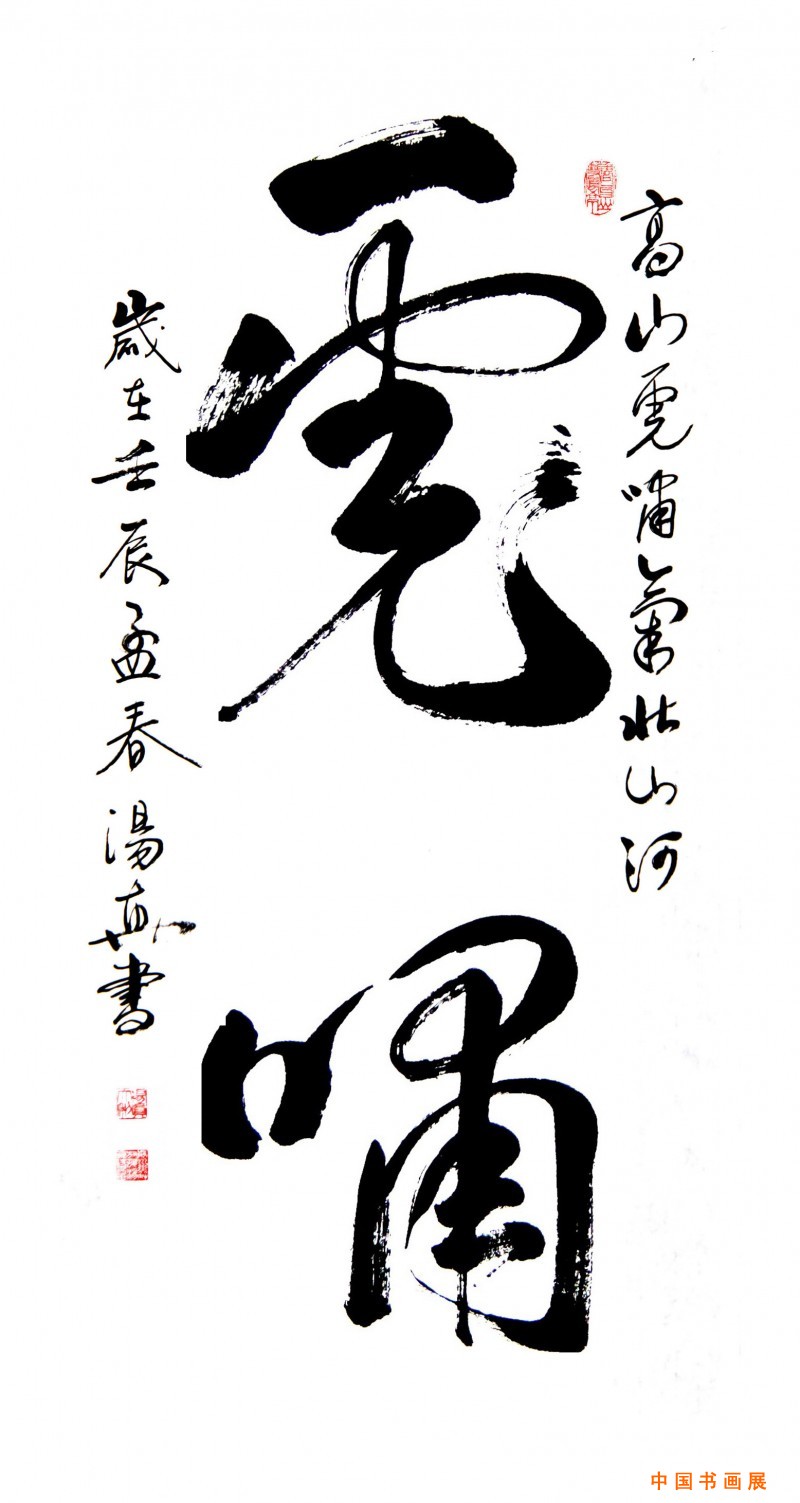 高山虎啸氣壮山河
虎啸
歲在壬辰孟春湯
書
中国书画展